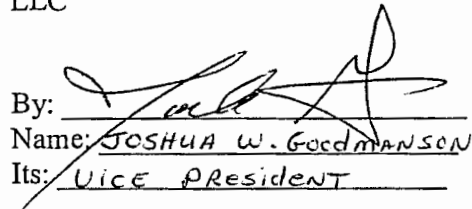 LLC
By:
Name: JOSHUA W. GOODMANSON
Its: VICE PRESIDENT